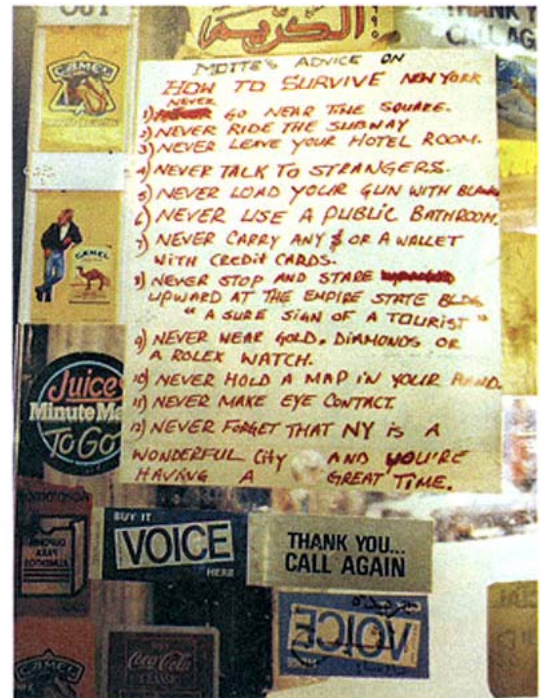 OUT
الكريم
THANK Y
CALL AG
CAMEL
MOTTE'S ADVICE ON
HOW TO SURVIVE NEW YORK
1) NEVER GO NEAR TIME SQUARE.
2) NEVER RIDE THE SUBWAY
3) NEVER LEAVE YOUR HOTEL ROOM.
4) NEVER TALK TO STRANGERS.
5) NEVER LOAD YOUR GUN WITH BLANKS
6) NEVER USE A PUBLIC BATHROOM.
7) NEVER CARRY ANY $ OR A WALLET
WITH CREDIT CARDS.
8) NEVER STOP AND STARE
UPWARD AT THE EMPIRE STATE BLDG
"A SURE SIGN OF A TOURIST"
9) NEVER WEAR GOLD, DIAMONDS OR
A ROLEX WATCH.
10) NEVER HOLD A MAP IN YOUR HAND.
11) NEVER MAKE EYE CONTACT.
12) NEVER FORGET THAT NY IS A
WONDERFUL CITY AND YOU'RE
HAVING A GREAT TIME.
CAMEL
Juice
Minute Ma
To Go
BUY IT
VOICE
HERE
THANK YOU...
CALL AGAIN
VOICE
CAMEL
Coca-Cola
CLASSIC